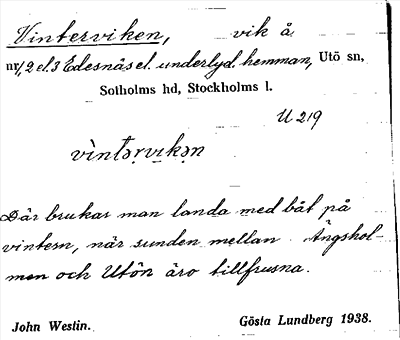 Vinterviken, vik å
nr 1, 2 el. 3 Edesnäs el. underlyd. hemman, Utö sn,
Sotholms hd, Stockholms l.
U 219
vìntəṛvıkəṇ
Där brukar man landa med båt på
vintern, när sunden mellan Ängshol-
men och Utön äro tillfrusna.
John Westin. Gösta Lundberg 1938.